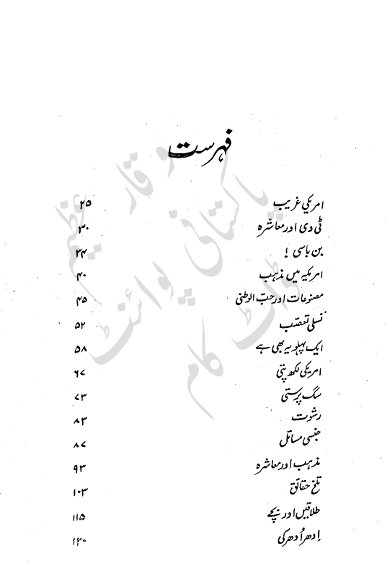 فہرست
امریکی غریب ۲۵
ٹی وی اور معاشرہ ۳۰
بن باسی ! ۳۴
امریکہ میں مذہب ۴۰
مصنوعات اور حب الوطنی ۴۵
نسلی تعصّب ۵۲
ایک پہلو یہ بھی ہے ۵۸
امریکی لکھ پتی ۶۷
سگ پرستی ۷۳
رشوت ۸۳
جنسی مسائل ۸۷
مذہب اور معاشرہ ۹۳
تلخ حقائق ۱۰۳
طلاقیں اور بچے ۱۱۵
اِدھر اُدھر کی ۱۲۰
وقار عظیم
پاکستانی پوائنٹ
ڈاٹ کام